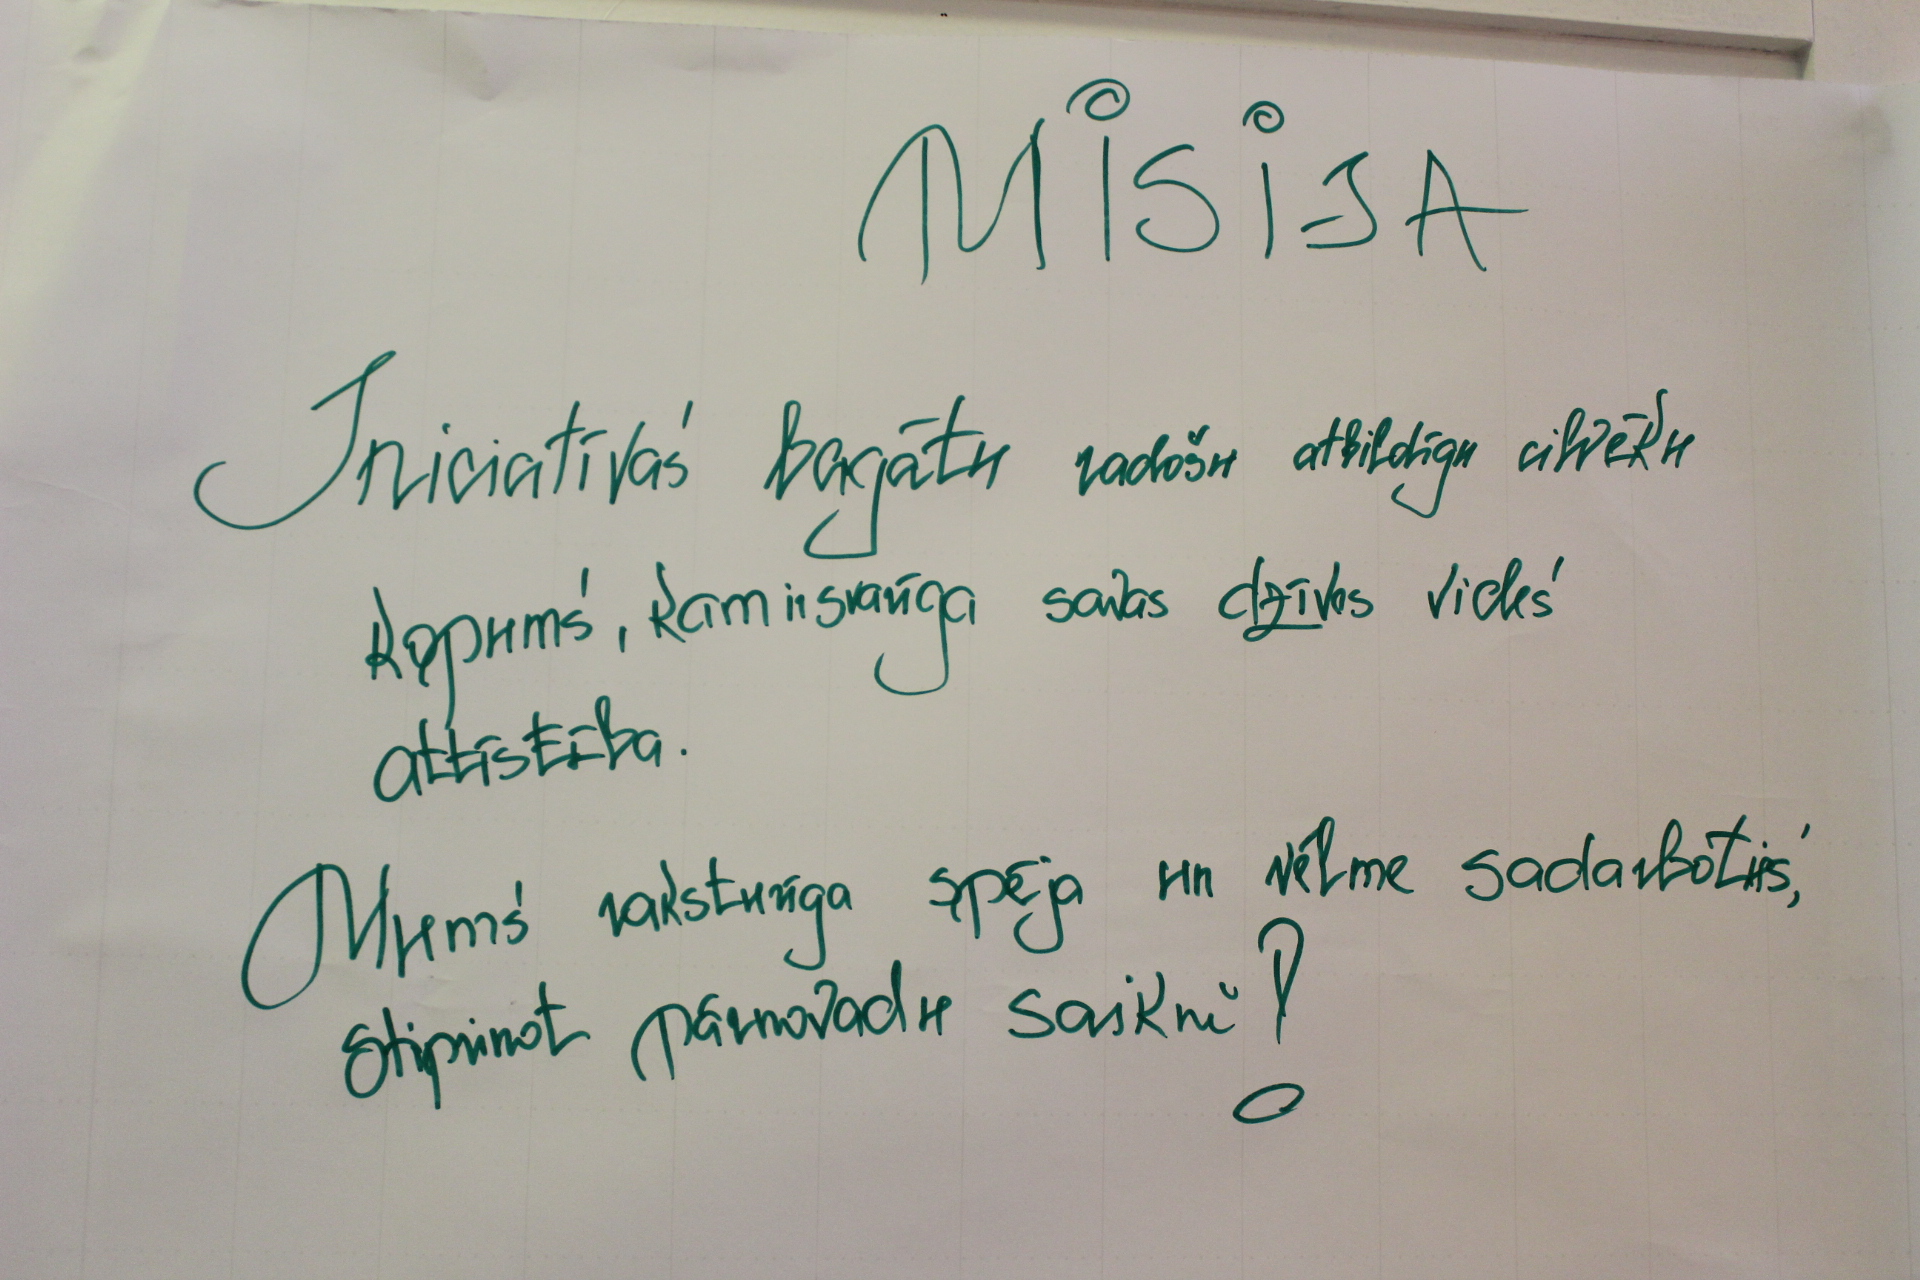 MISIJA
Iniciatīvas bagātu radošu atbildīgu cilvēku
kopums, kam ir svarīga savas dzīves vides
attīstība.
Mums raksturīga spēja un vēlme sadarboties,
stiprinot pārnovadu saikni!